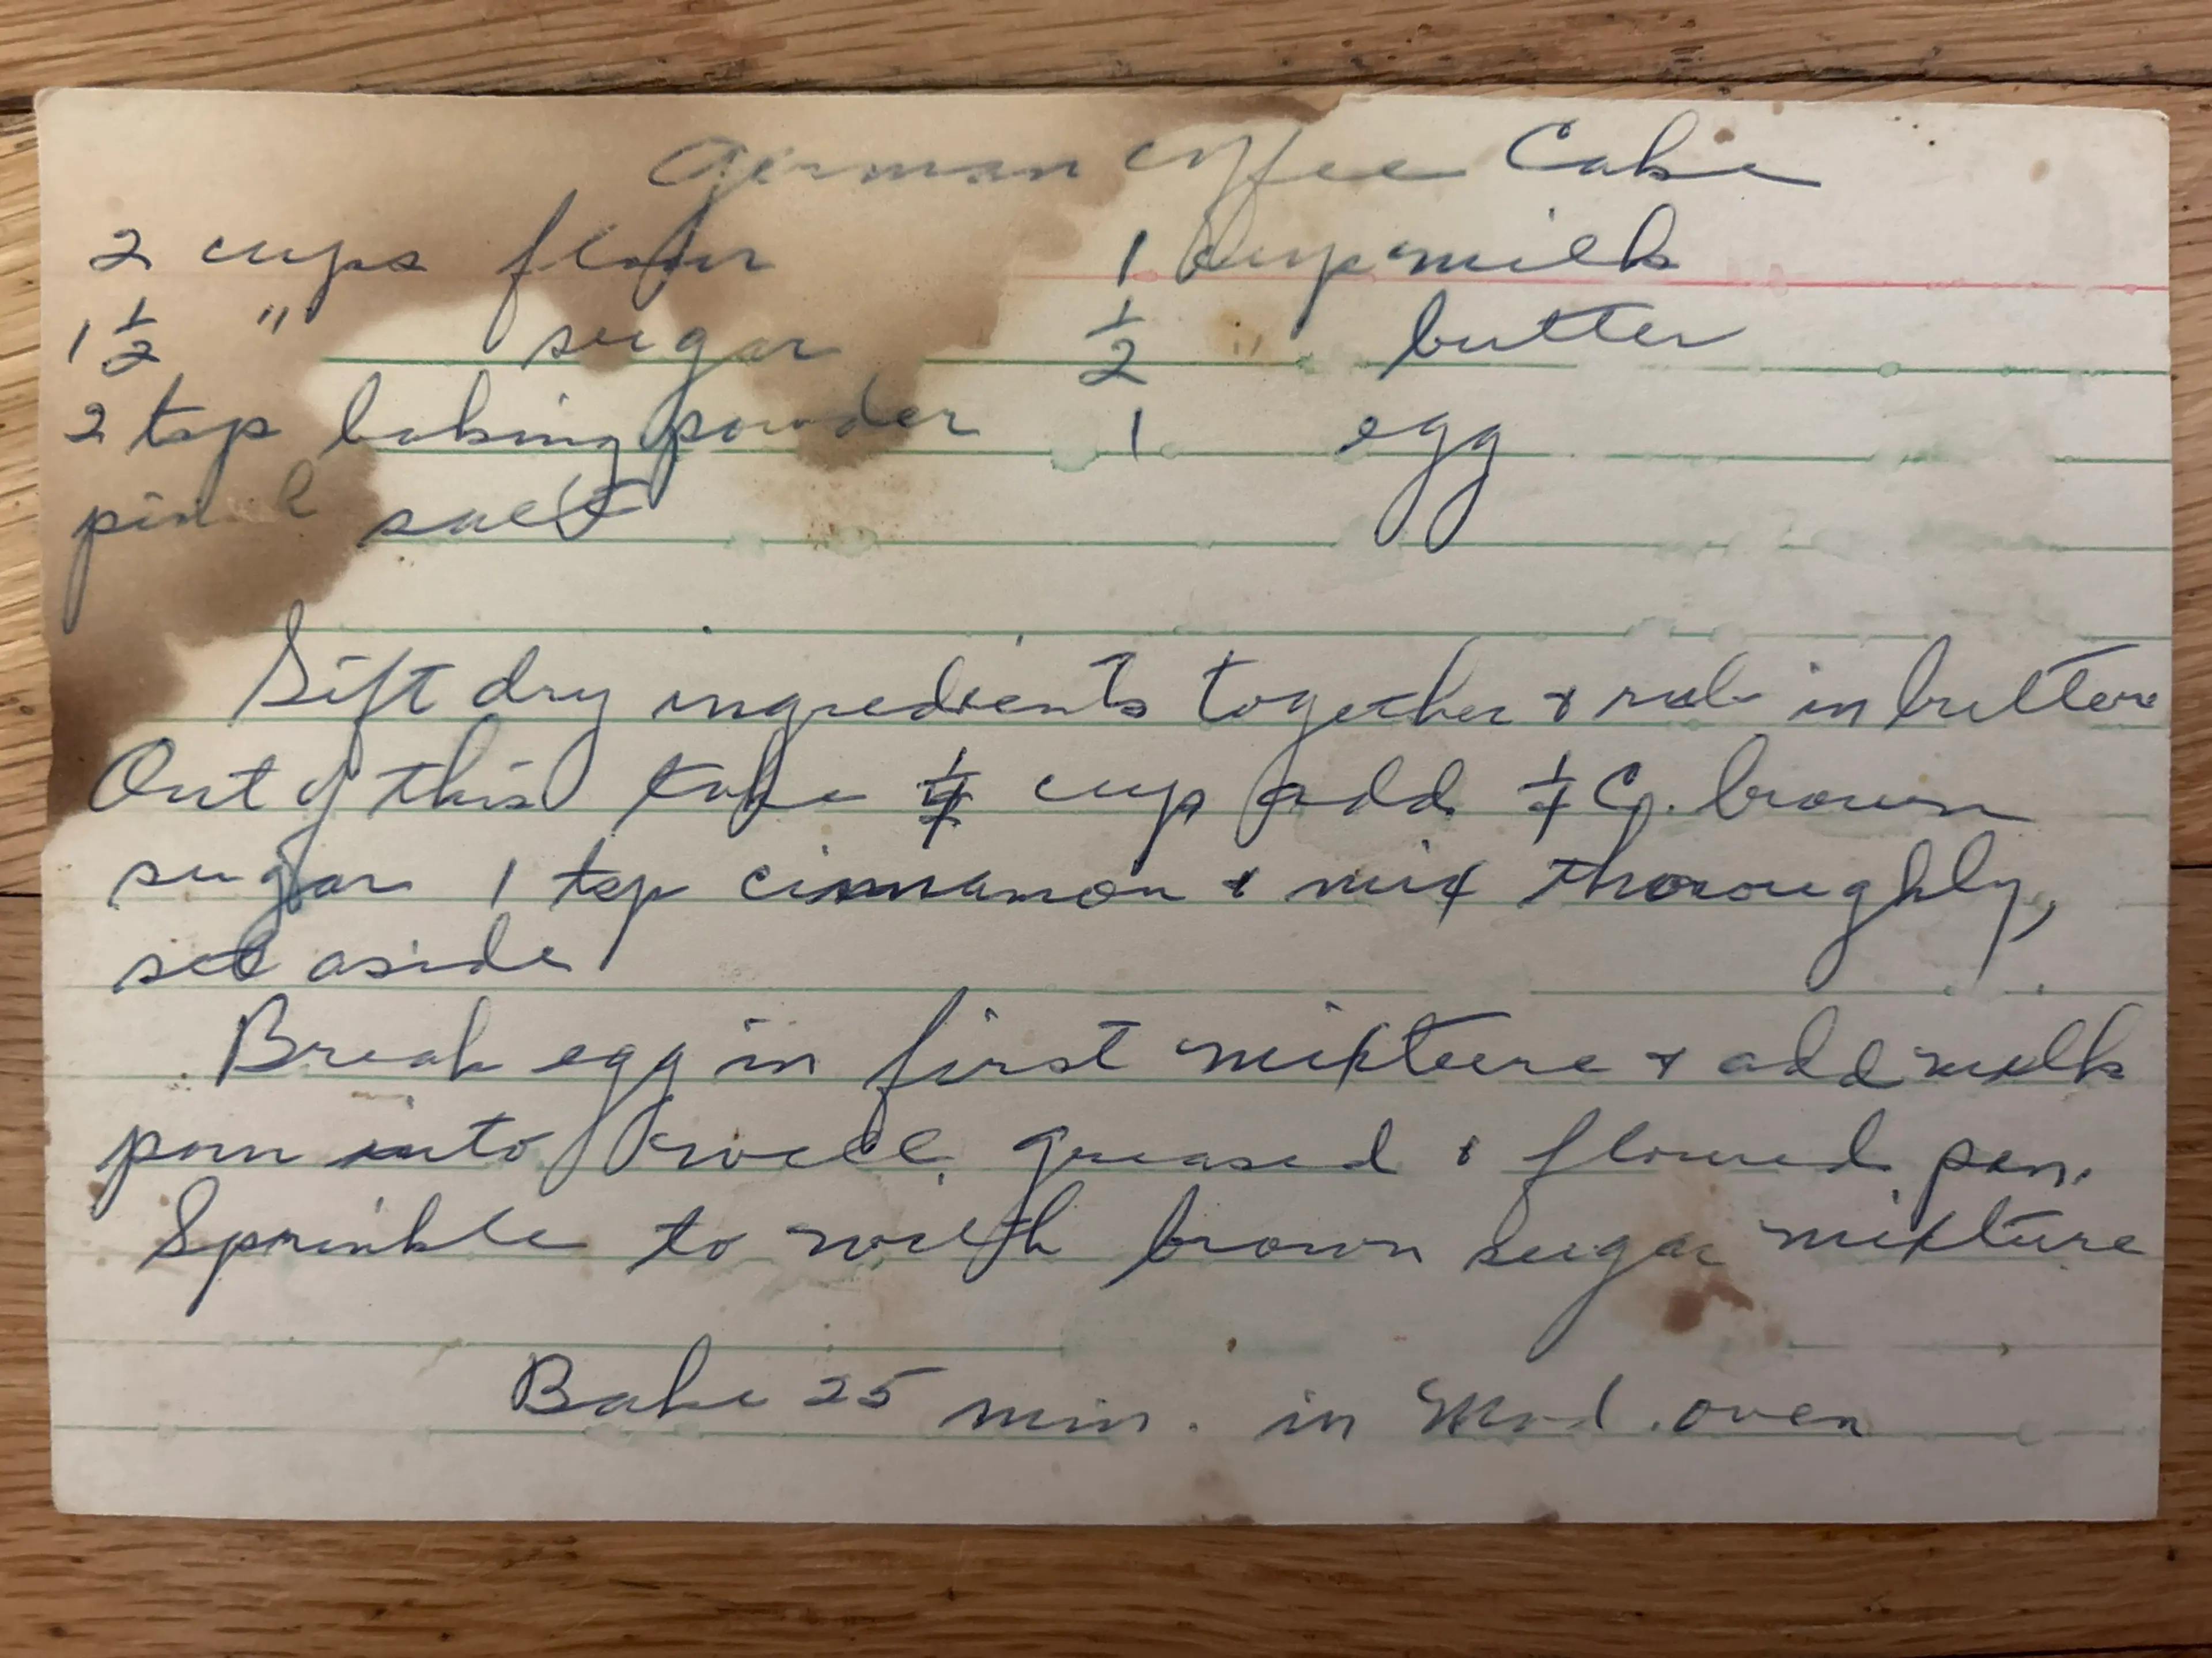 German Coffee Cake
2 cups flour 1 cup milk
1 1/2 " sugar 1/2 " butter
2 tsp baking powder 1 egg
salt
Sift dry ingredients together & rub in butter
Out of this take cup add 1/4 C. brown
sugar 1 tsp cinnamon & mix thoroughly,
set aside
Break egg in first mixture & add milk
pour into well greased & floured pan.
Sprinkle to with brown sugar mixture
Bake 25 min. in Mod. oven